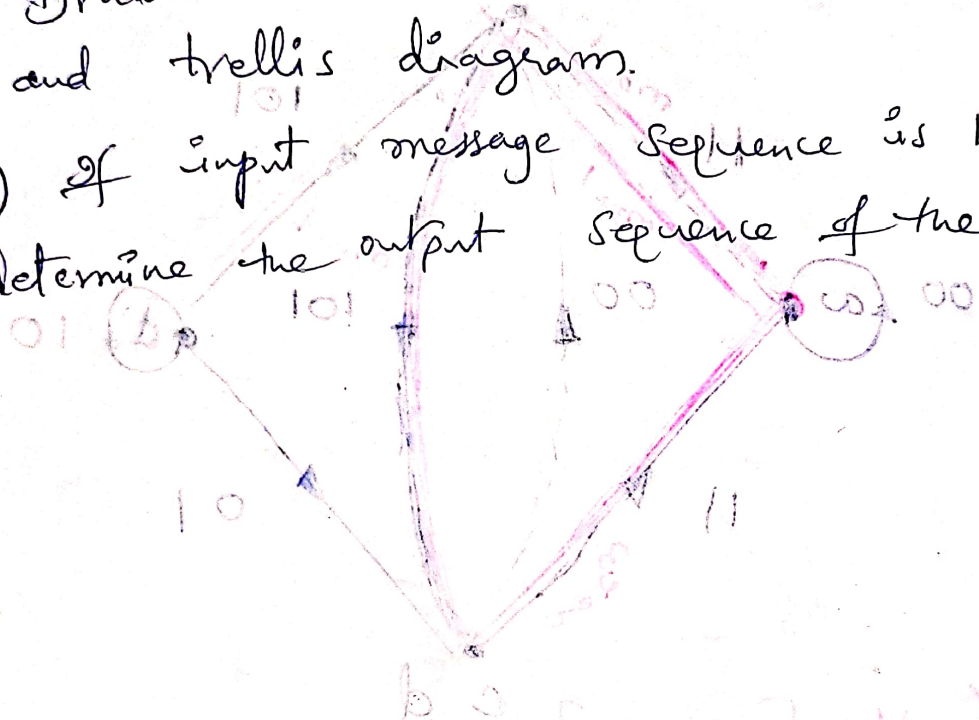 and trellis diagram.
101
) If input message sequence is
Determine the output sequence of the
101
00
00
01
10
11